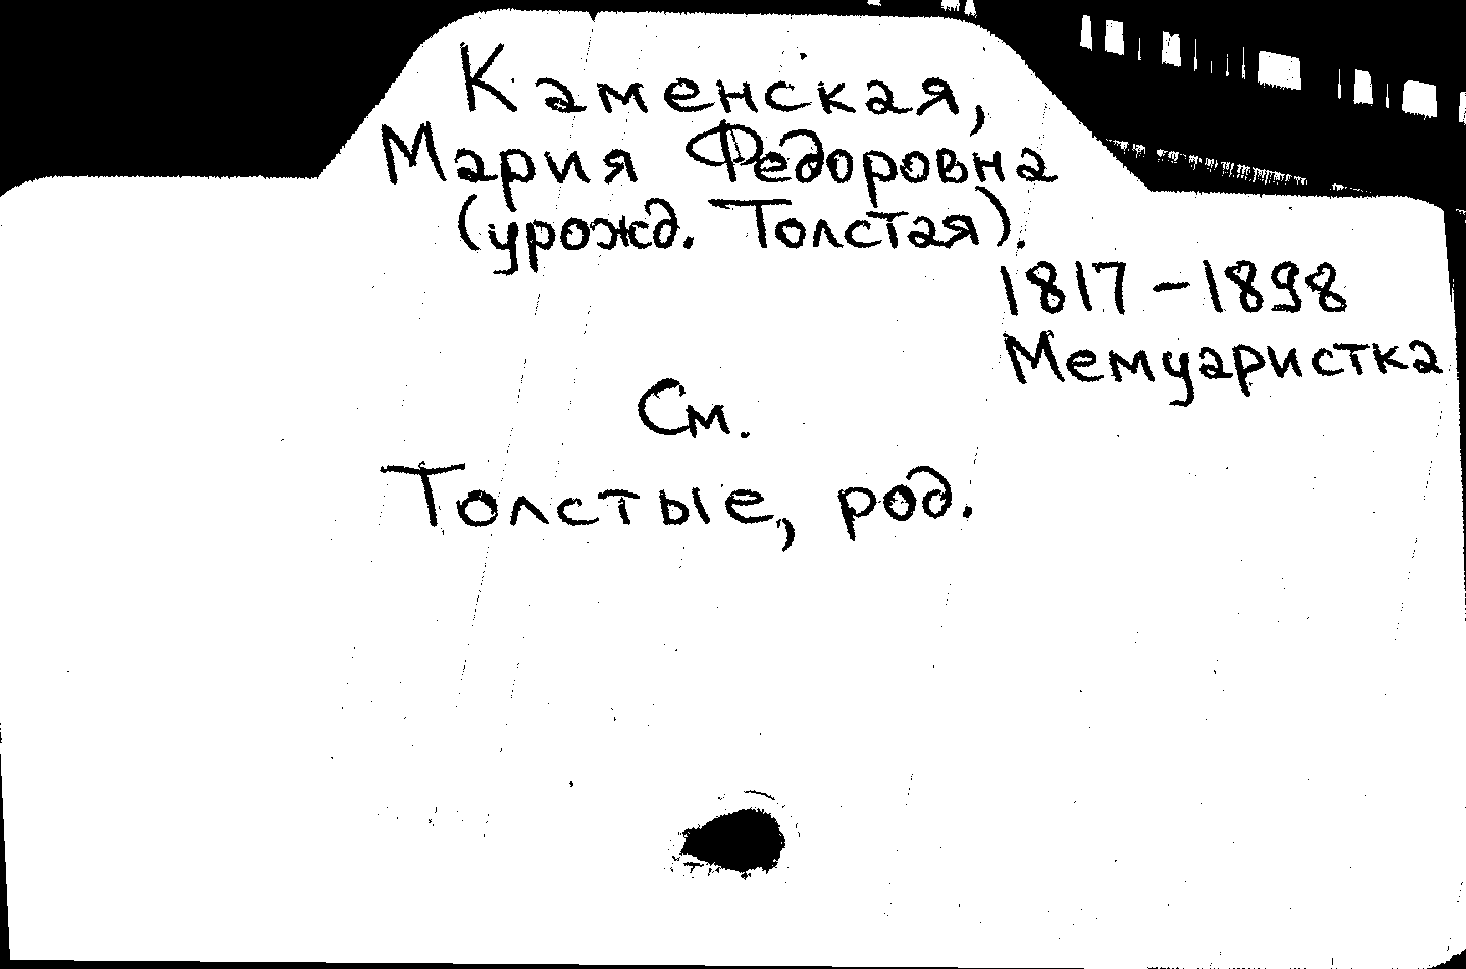 Каменская,
Мария Федоровна
(урожд. Толстая).
1817 – 1898
Мемуаристка
См.
Толстые, род.